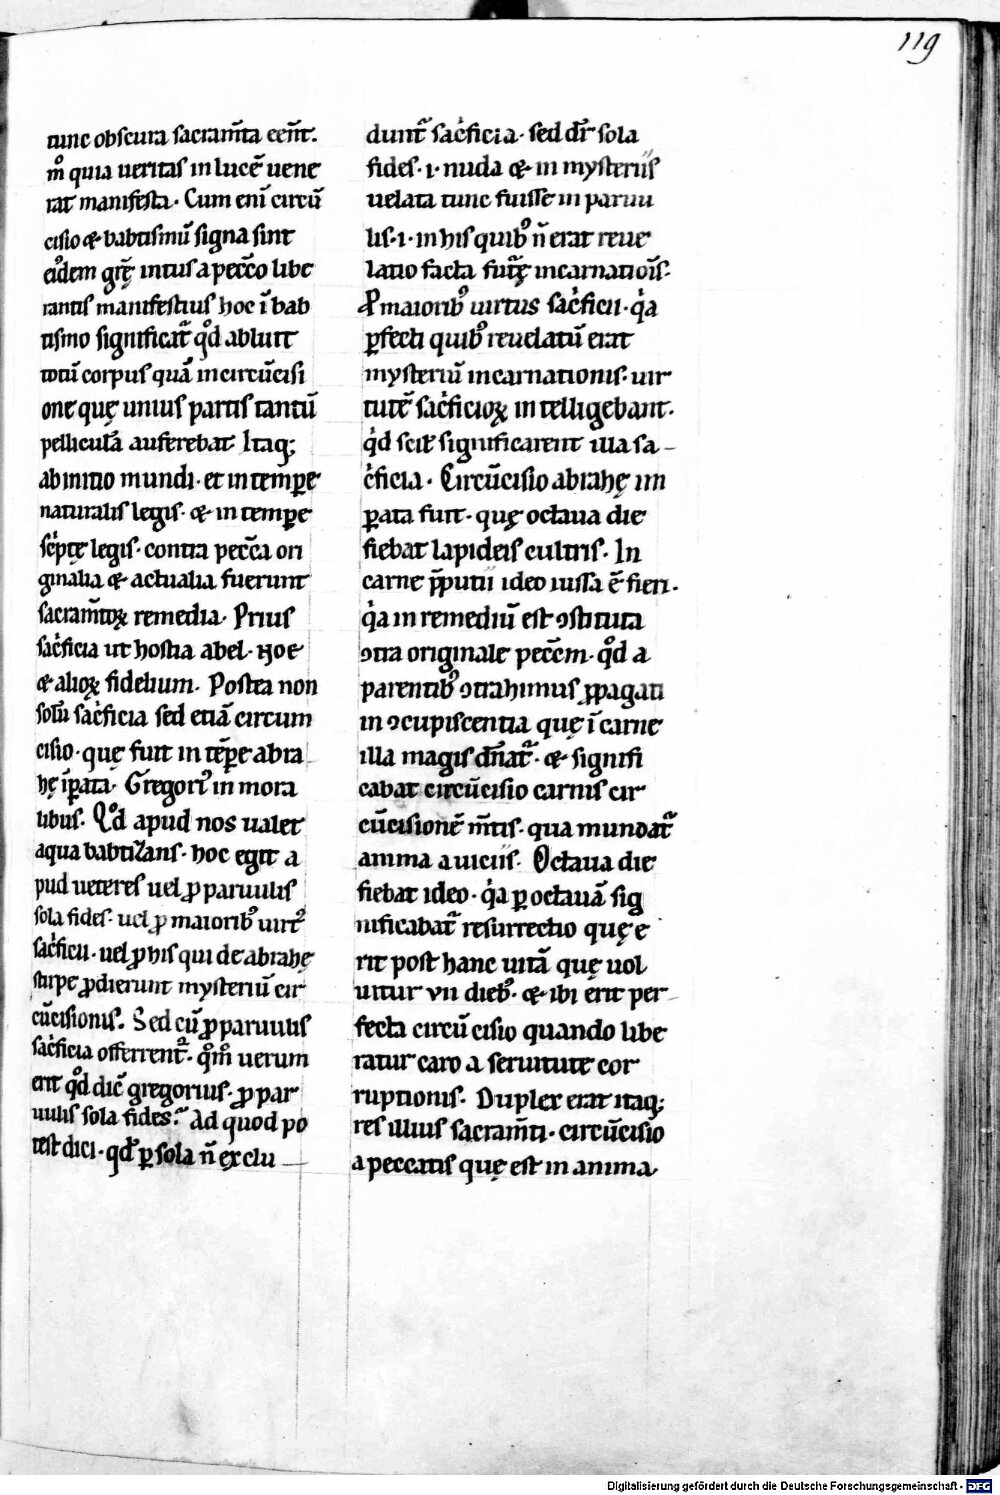 119
tunc obscura sacram̄ta een̄t.
m̊ quia ueritas in lucē uene
rat manifesta. Cum eni̅ circū
cisio & babtismū signa sint
eiꝰdem grę̄ intus a pecc̄o libe
rantis manifestius hoc ī bab
tismo significat᷑ qd̊ abluit
totū corpus quā in circūcisi
one quę unius partis tantū
pelliculā auferebat. Itaq;
ab initio mundi. et in tempꝑe
naturalis legis. & in tempꝑe
sc̄ptę legis. contra pecc̄a ori
ginalia & actualia fuerunt
sacram̄toꝝ remedia. Prius
sac̍ficia ut hostia abel. Noe
& alioꝝ fidelium. Postea non
solū sac̍ficia sed etiā circum
cisio. quę fuit in tēꝑe abra
hę īꝑata. Gregoriꝰ in mora
libus. Qd̊ apud nos ualet
aqua babtizans. hoc egit a
pud ueteres uel ꝓ paruulis
sola fides. uel ꝓ maioribꝰ uirtꝰ
sac̍ficii. uel ꝓ his qui de abrahę
stirpe ꝓdierunt mysteriū cir
cūcisionis. Sed cū ꝓ paruulis
sac̍ficia offerrent᷑. qm̊ uerum
erit qd̊ dic̄ gregorius. ꝓ par
uulis sola fides. Ad quod po
test dici. qd̊ ꝑ sola n̄ exclu
dunt᷑ sac̍ficia. sed dr̄ sola
fides .i. nuda & in mysteriis
uelata tunc fuisse in paruu
lis .i. in his quibꝰ n̄ erat reue
latio facta futꝵę incarnatiōis.
Pro maioribꝰ uirtus sac̍ficii. q̍a
ꝑfecti quibꝰ reuelatū erat
mysteriū incarnationis. uir
tutē sac̍ficioꝝ intelligebant.
q̍d scil̄ significarent illa sa
c̍ficia. Circūcisio abrahę im
ꝑata fuit. quę octaua die
fiebat lapideis cultris. In
carne p̄putii ideo iussa ē fieri.
q̍a in remediū est ꝯstituta
ꝯtra originale pecc̄m. qd̊ a
parentibꝰ ꝯtrahimus ꝓpagati
in ꝯcupiscentia quę ī carne
illa magis dn̄at᷑. & signifi
cabat circūcisio carnis cir
cūcisionē m̄tis. qua mundat᷑
anima a uiciis. Octaua die
fiebat ideo. q̍a ꝑ octauā sig
nificabat᷑ resurrectio quę e
rit post hanc uitā quę uol
uitur vii diebꝰ. & ibi erit per
fecta circūcisio quando libe
ratur caro a seruitute cor
ruptionis. Duplex erat itaq;
res illius sacram̄ti. circūcisio
a peccatis quę est in anima
Digitalisierung gefördert durch die Deutsche Forschungsgemeinschaft - DFG